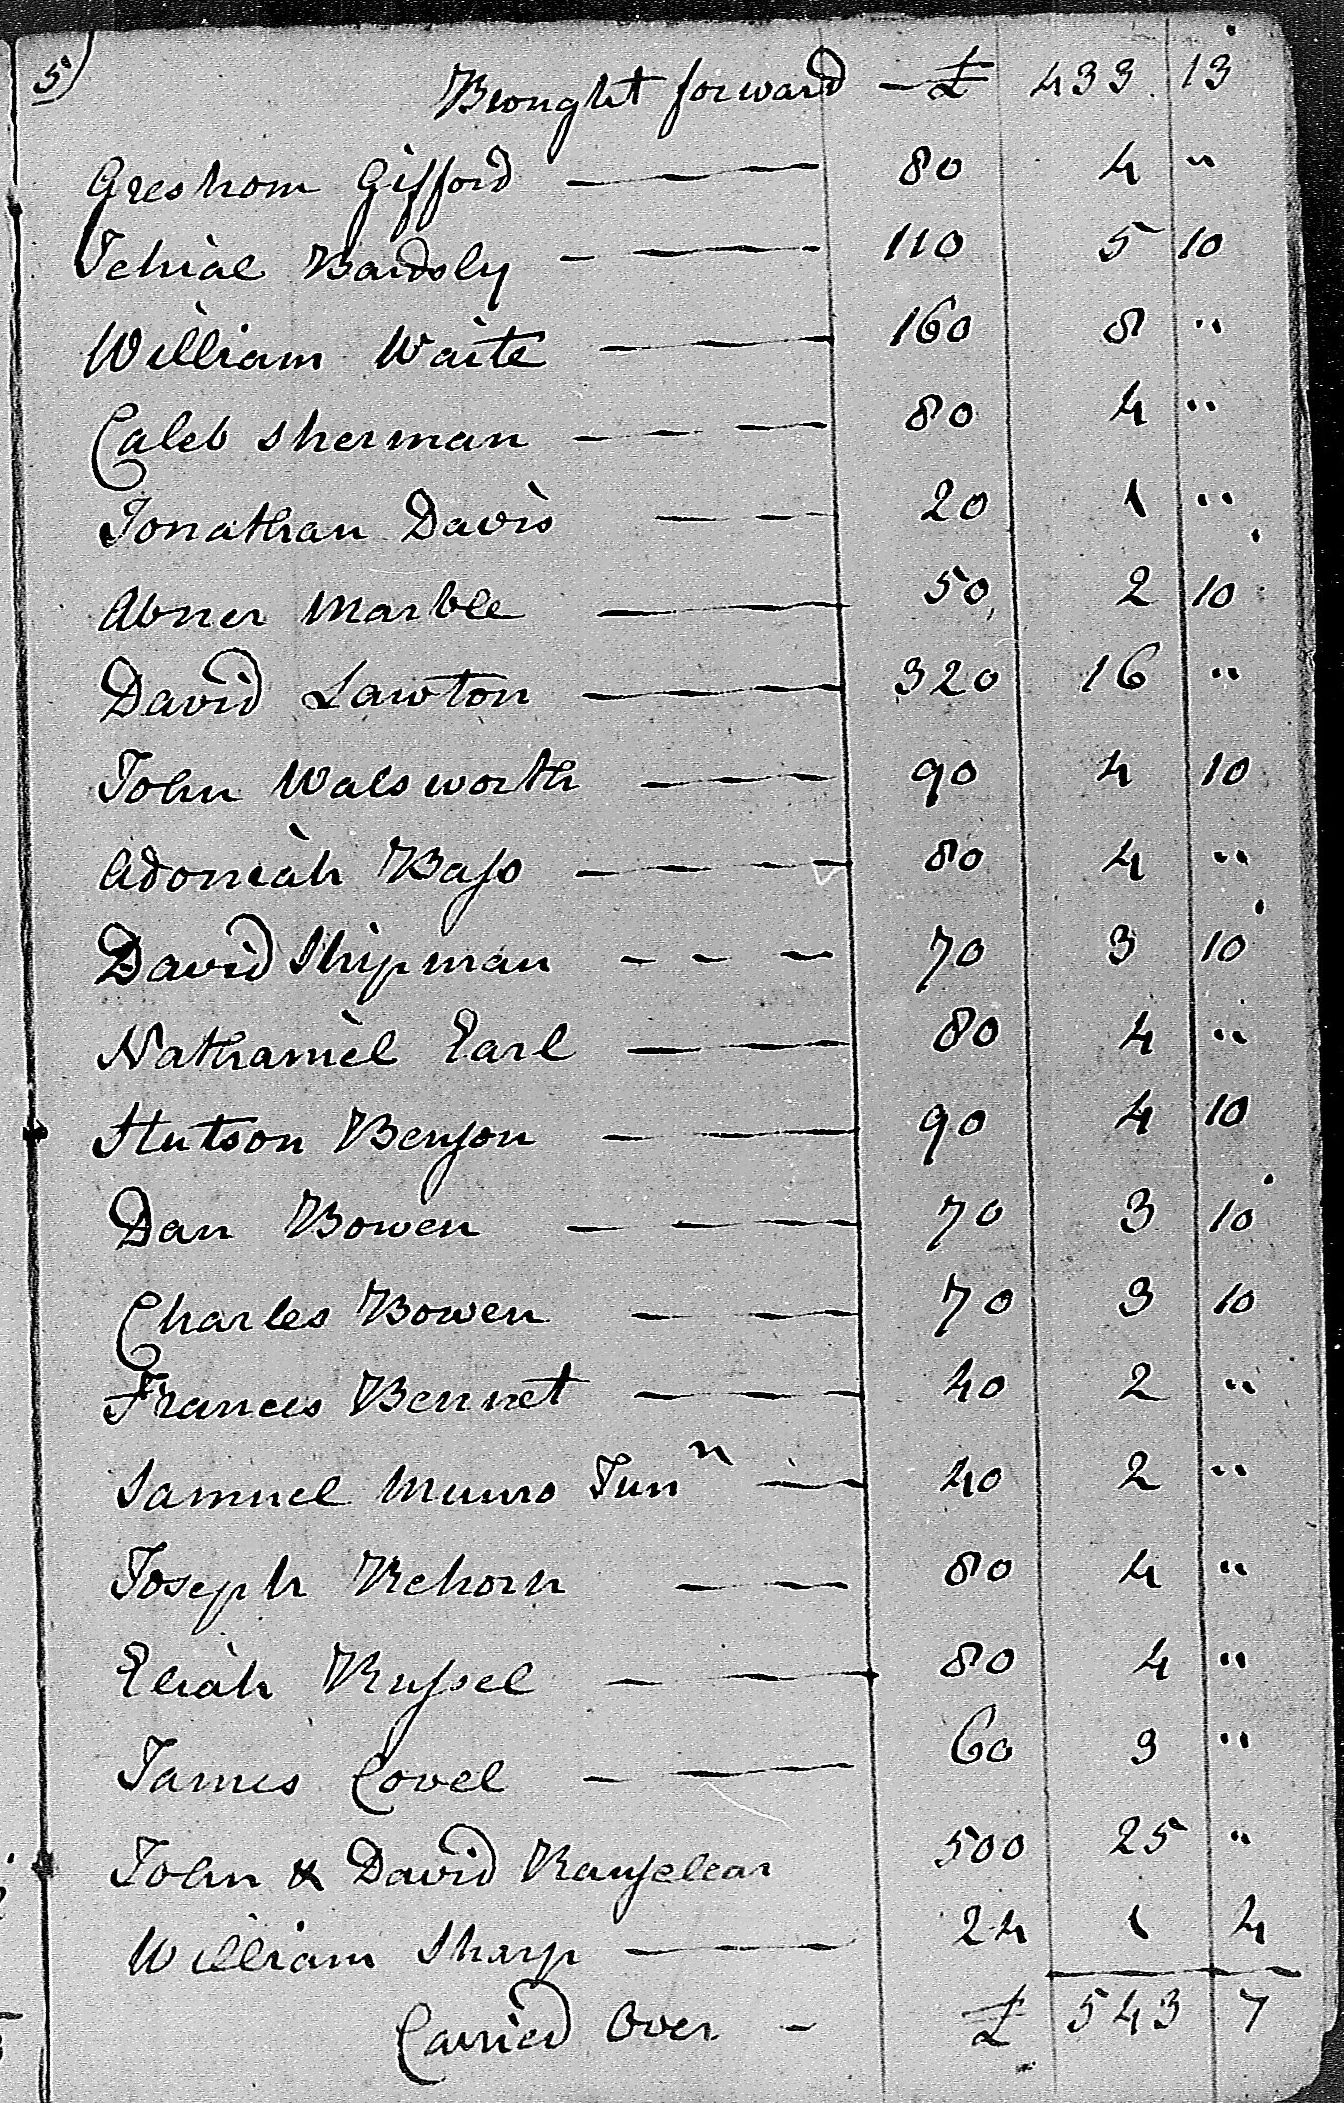 5)
Brought forward — £ 433 13
Greshom Gifford — — — 80 4 "
Jehial Bardsly - — — 110 5 10
William Waite — — — 160 8 "
Caleb Sherman — — — 80 4 "
Jonathan Davis — — 20 1 "
Abner Marble — — — 50 2 10
David Lawton — — — 320 16 "
John Walsworth — — — 90 4 10
Adoniah Bass — — — 80 4 "
David Shipman - - - 70 3 10
Nathaniel Earl — — — 80 4 "
Hutson Benson — — — 90 4 10
Dan Bowen — — — 70 3 10
Charles Bowen — — — 70 3 10
Frances Bennet — — — 40 2 "
Samuel Munro Junr — — 40 2 "
Joseph Rehorn — — 80 4 "
Eliah Russel — — — 80 4 "
James Covel - — — 60 3 "
John & David Ranselear 500 25 "
William Sharp — — — 24 1 4
Carried Over - £ 543 7